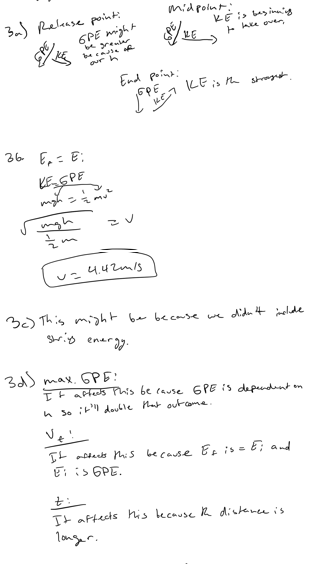 3a) Release point:
GPE
KE
GPE might
be greater
because of
our h
Midpoint:
GPE
KE
KE is beginning
to take over.
End point:
GPE
KE
KE is the strongest.
3b. E_f = E_i
KE = GPE
mgh = 1/2 mv²
√(mgh / 1/2 m) = V
v = 4.42 m/s
3c) This might be because we didn't include
energy.
3d) max. GPE:
It affects this because GPE is dependent on
h so it'll double that outcome.
V_f:
It affects this because E_f is = E_i and
E_i is GPE.
t:
It affects this because the distance is
longer.